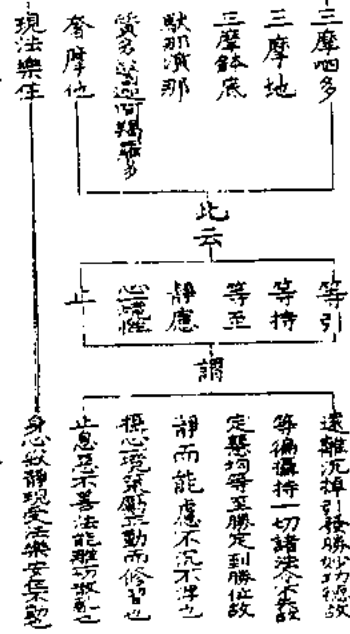 三摩呬多
三摩地
三摩鉢底
馱那演那
質多翳迦阿羯羅多
奢摩他
現法樂住
此云
等引
等持
等至
靜慮
心一境性
止
謂
遠離沉掉引發勝妙功德故
等徧攝持一切諸法令不散故
定慧均等至勝定到勝位故
靜而能慮不沉不浮也
攝心一境策勵正動而修習也
止息惡不善法能離切散亂也
身心寂靜現受法樂安住不動也